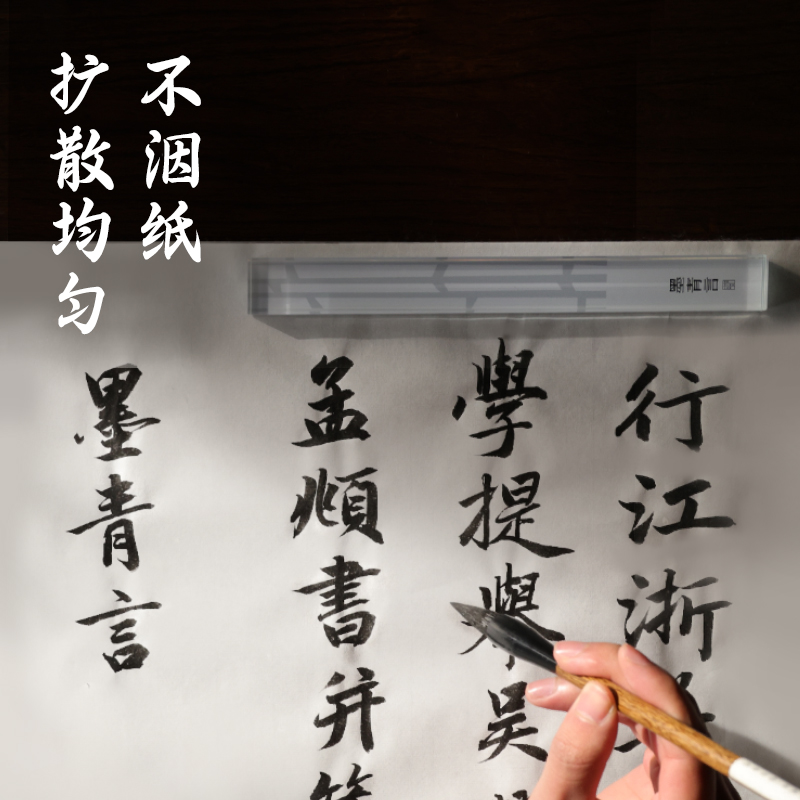 不洇纸
扩散均匀
墨青言
行江浙
學提舉吳
孟頫書并
墨青言